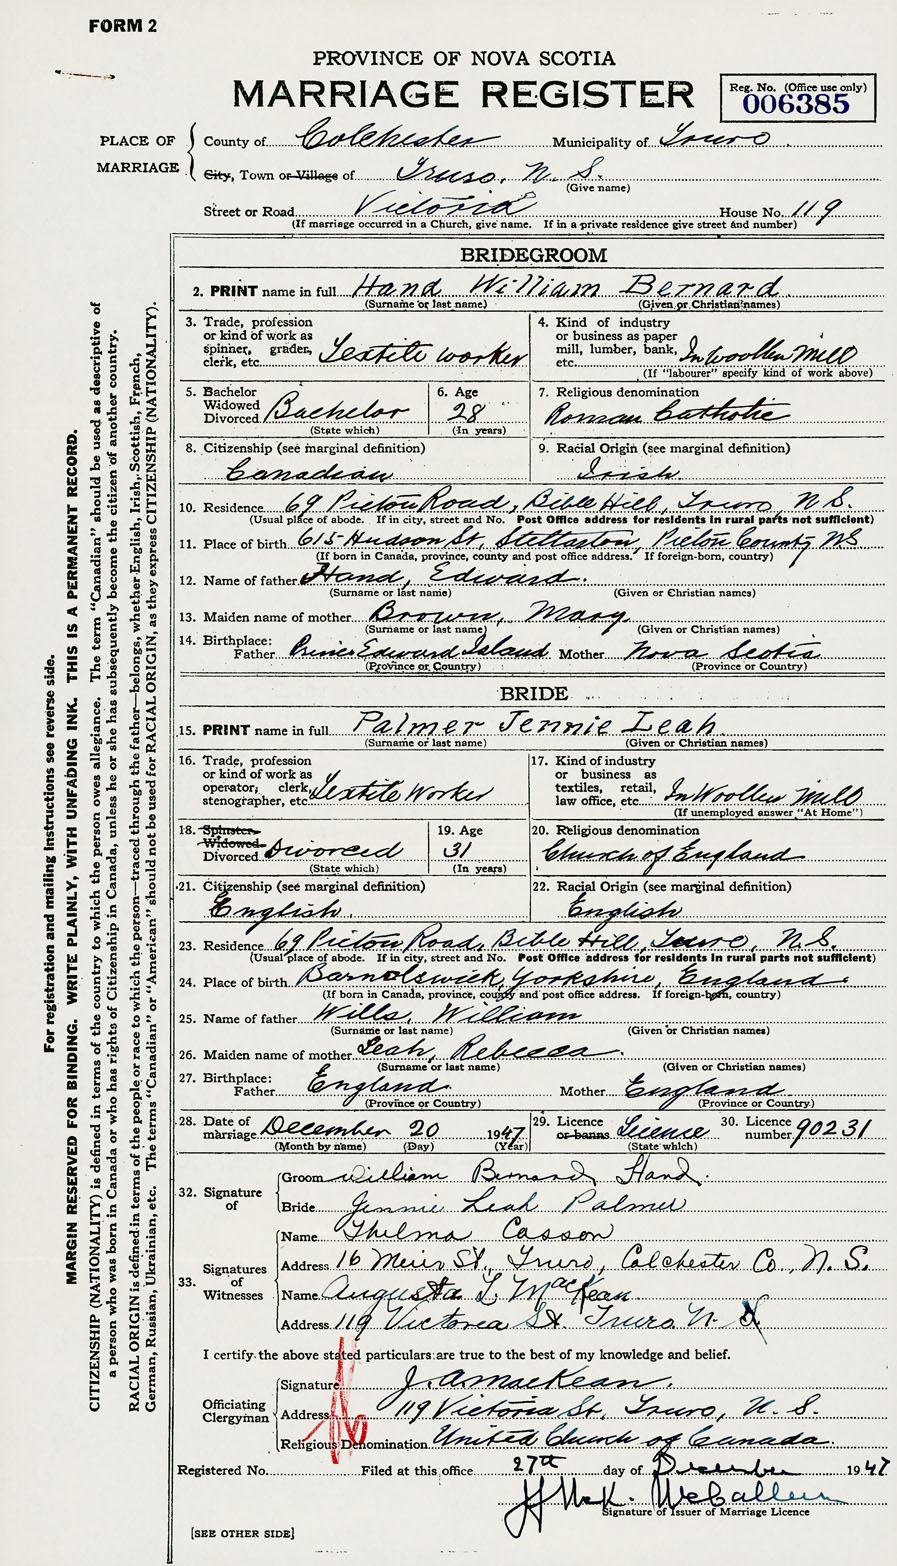 FORM 2
PROVINCE OF NOVA SCOTIA
MARRIAGE REGISTER
Reg. No. (Office use only)
006385
PLACE OF MARRIAGE
County of Colchester Municipality of Truro
City, Town or Village of Truro, N. S.
(Give name)
Street or Road Victoria House No. 119
(If marriage occurred in a Church, give name. If in a private residence give street and number)
BRIDEGROOM
2. PRINT name in full Hand William Bernard
(Surname or last name) (Given or Christian names)
3. Trade, profession or kind of work as spinner, grader, clerk, etc. Textile worker
4. Kind of industry or business as paper mill, lumber, bank, etc. In Woollen Mill
(If "labourer" specify kind of work above)
5. Bachelor Widowed Divorced Bachelor
(State which)
6. Age 28
(In years)
7. Religious denomination
Roman Catholic
8. Citizenship (see marginal definition)
Canadian
9. Racial Origin (see marginal definition)
Irish
10. Residence 69 Picton Road, Bible Hill, Truro, N. S.
(Usual place of abode. If in city, street and No. Post Office address for residents in rural parts not sufficient)
11. Place of birth 615 Hudson St, Stellarton, Picton County N.S.
(If born in Canada, province, county and post office address. If foreign-born, country)
12. Name of father Hand, Edward.
(Surname or last name) (Given or Christian names)
13. Maiden name of mother Brown, Mary
(Surname or last name) (Given or Christian names)
14. Birthplace: Father Prince Edward Island Mother Nova Scotia
(Province or Country) (Province or Country)
BRIDE
15. PRINT name in full Palmer Jennie Leah
(Surname or last name) (Given or Christian names)
16. Trade, profession or kind of work as operator, clerk, stenographer, etc. Textile Worker
17. Kind of industry or business as textiles, retail, law office, etc. In Woollen Mill
(If unemployed answer "At Home")
18. Spinster Widowed Divorced Divorced
(State which)
19. Age 31
(In years)
20. Religious denomination
Church of England
21. Citizenship (see marginal definition)
English.
22. Racial Origin (see marginal definition)
English
23. Residence 69 Picton Road, Bible Hill, Truro, N.S.
(Usual place of abode. If in city, street and No. Post Office address for residents in rural parts not sufficient)
24. Place of birth Barnolswick, Yorkshire, England.
(If born in Canada, province, county and post office address. If foreign-born, country)
25. Name of father Wills, William
(Surname or last name) (Given or Christian names)
26. Maiden name of mother Leah, Rebecca.
(Surname or last name) (Given or Christian names)
27. Birthplace: Father England. Mother England
(Province or Country) (Province or Country)
28. Date of marriage December 20 1947
(Month by name) (Day) (Year)
29. Licence or banns Licence
(State which)
30. Licence number 90231
32. Signature of
Groom William Bernard Hand.
Bride Jennie Leah Palmer
33. Signatures of Witnesses
Name Thelma Casson
Address 16 Muir St., Truro, Colchester Co., N. S.
Name Augusta L. MacKean
Address 119 Victoria St. Truro N. S
I certify the above stated particulars are true to the best of my knowledge and belief.
Officiating Clergyman
Signature J. A. MacKean.
Address 119 Victoria St., Truro, N. S.
Religious Denomination United Church of Canada.
Registered No. Filed at this office 27th day of December 1947
McCallum
Signature of Issuer of Marriage Licence
[SEE OTHER SIDE]
For registration and mailing instructions see reverse side.
MARGIN RESERVED FOR BINDING. WRITE PLAINLY, WITH UNFADING INK. THIS IS A PERMANENT RECORD.
CITIZENSHIP (NATIONALITY) is defined in terms of the country to which the person owes allegiance. The term "Canadian" should be used as descriptive of
a person who was born in Canada or who has rights of Citizenship in Canada, unless he or she has subsequently become the citizen of another country.
RACIAL ORIGIN is defined in terms of the people or race to which the person—traced through the father—belongs, whether English, Irish, Scottish, French,
German, Russian, Ukrainian, etc. The terms "Canadian" or "American" should not be used for RACIAL ORIGIN, as they express CITIZENSHIP (NATIONALITY).